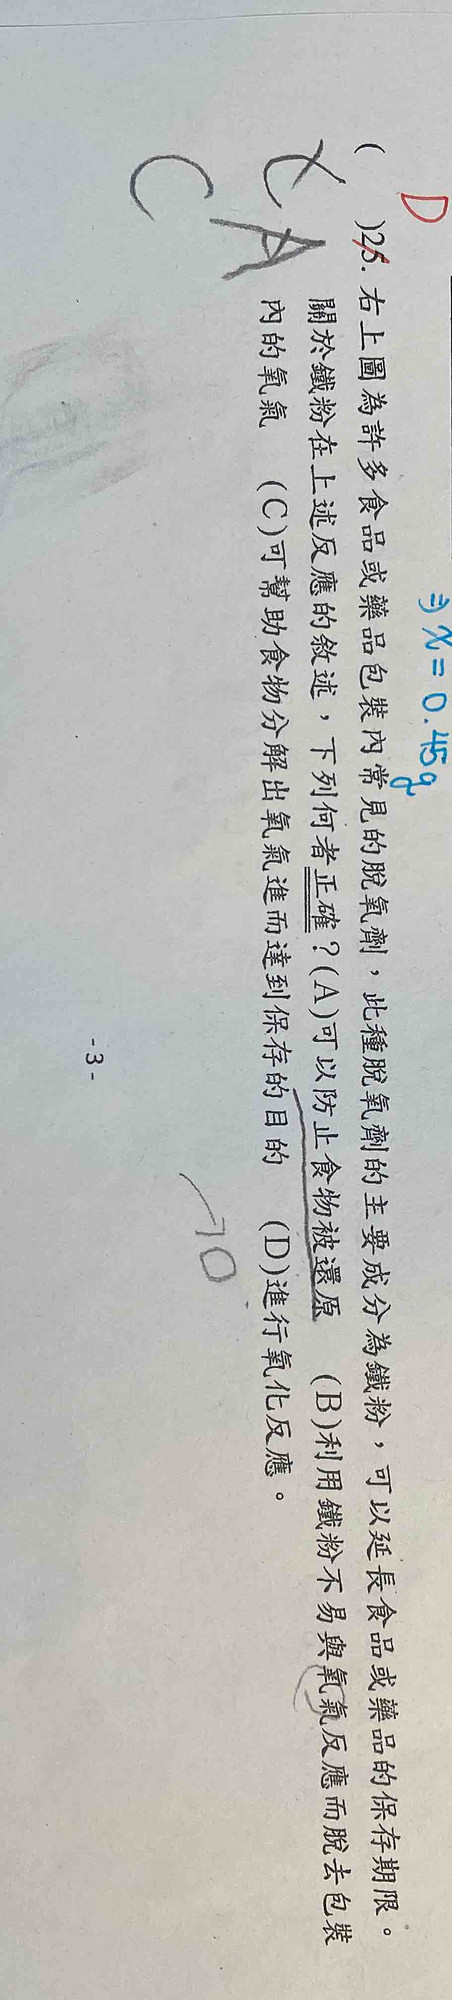 ⇒ x = 0.45g
D
( )25. 右上圖為許多食品或藥品包裝內常見的脫氧劑，此種脫氧劑的主要成分為鐵粉，可以延長食品或藥品的保存期限。
關於鐵粉在上述反應的敘述，下列何者正確？(A)可以防止食物被還原 (B)利用鐵粉不易與氧氣反應而脫去包裝
內的氧氣 (C)可幫助食物分解出氧氣進而達到保存的目的 (D)進行氧化反應。
A
C
- 3 -